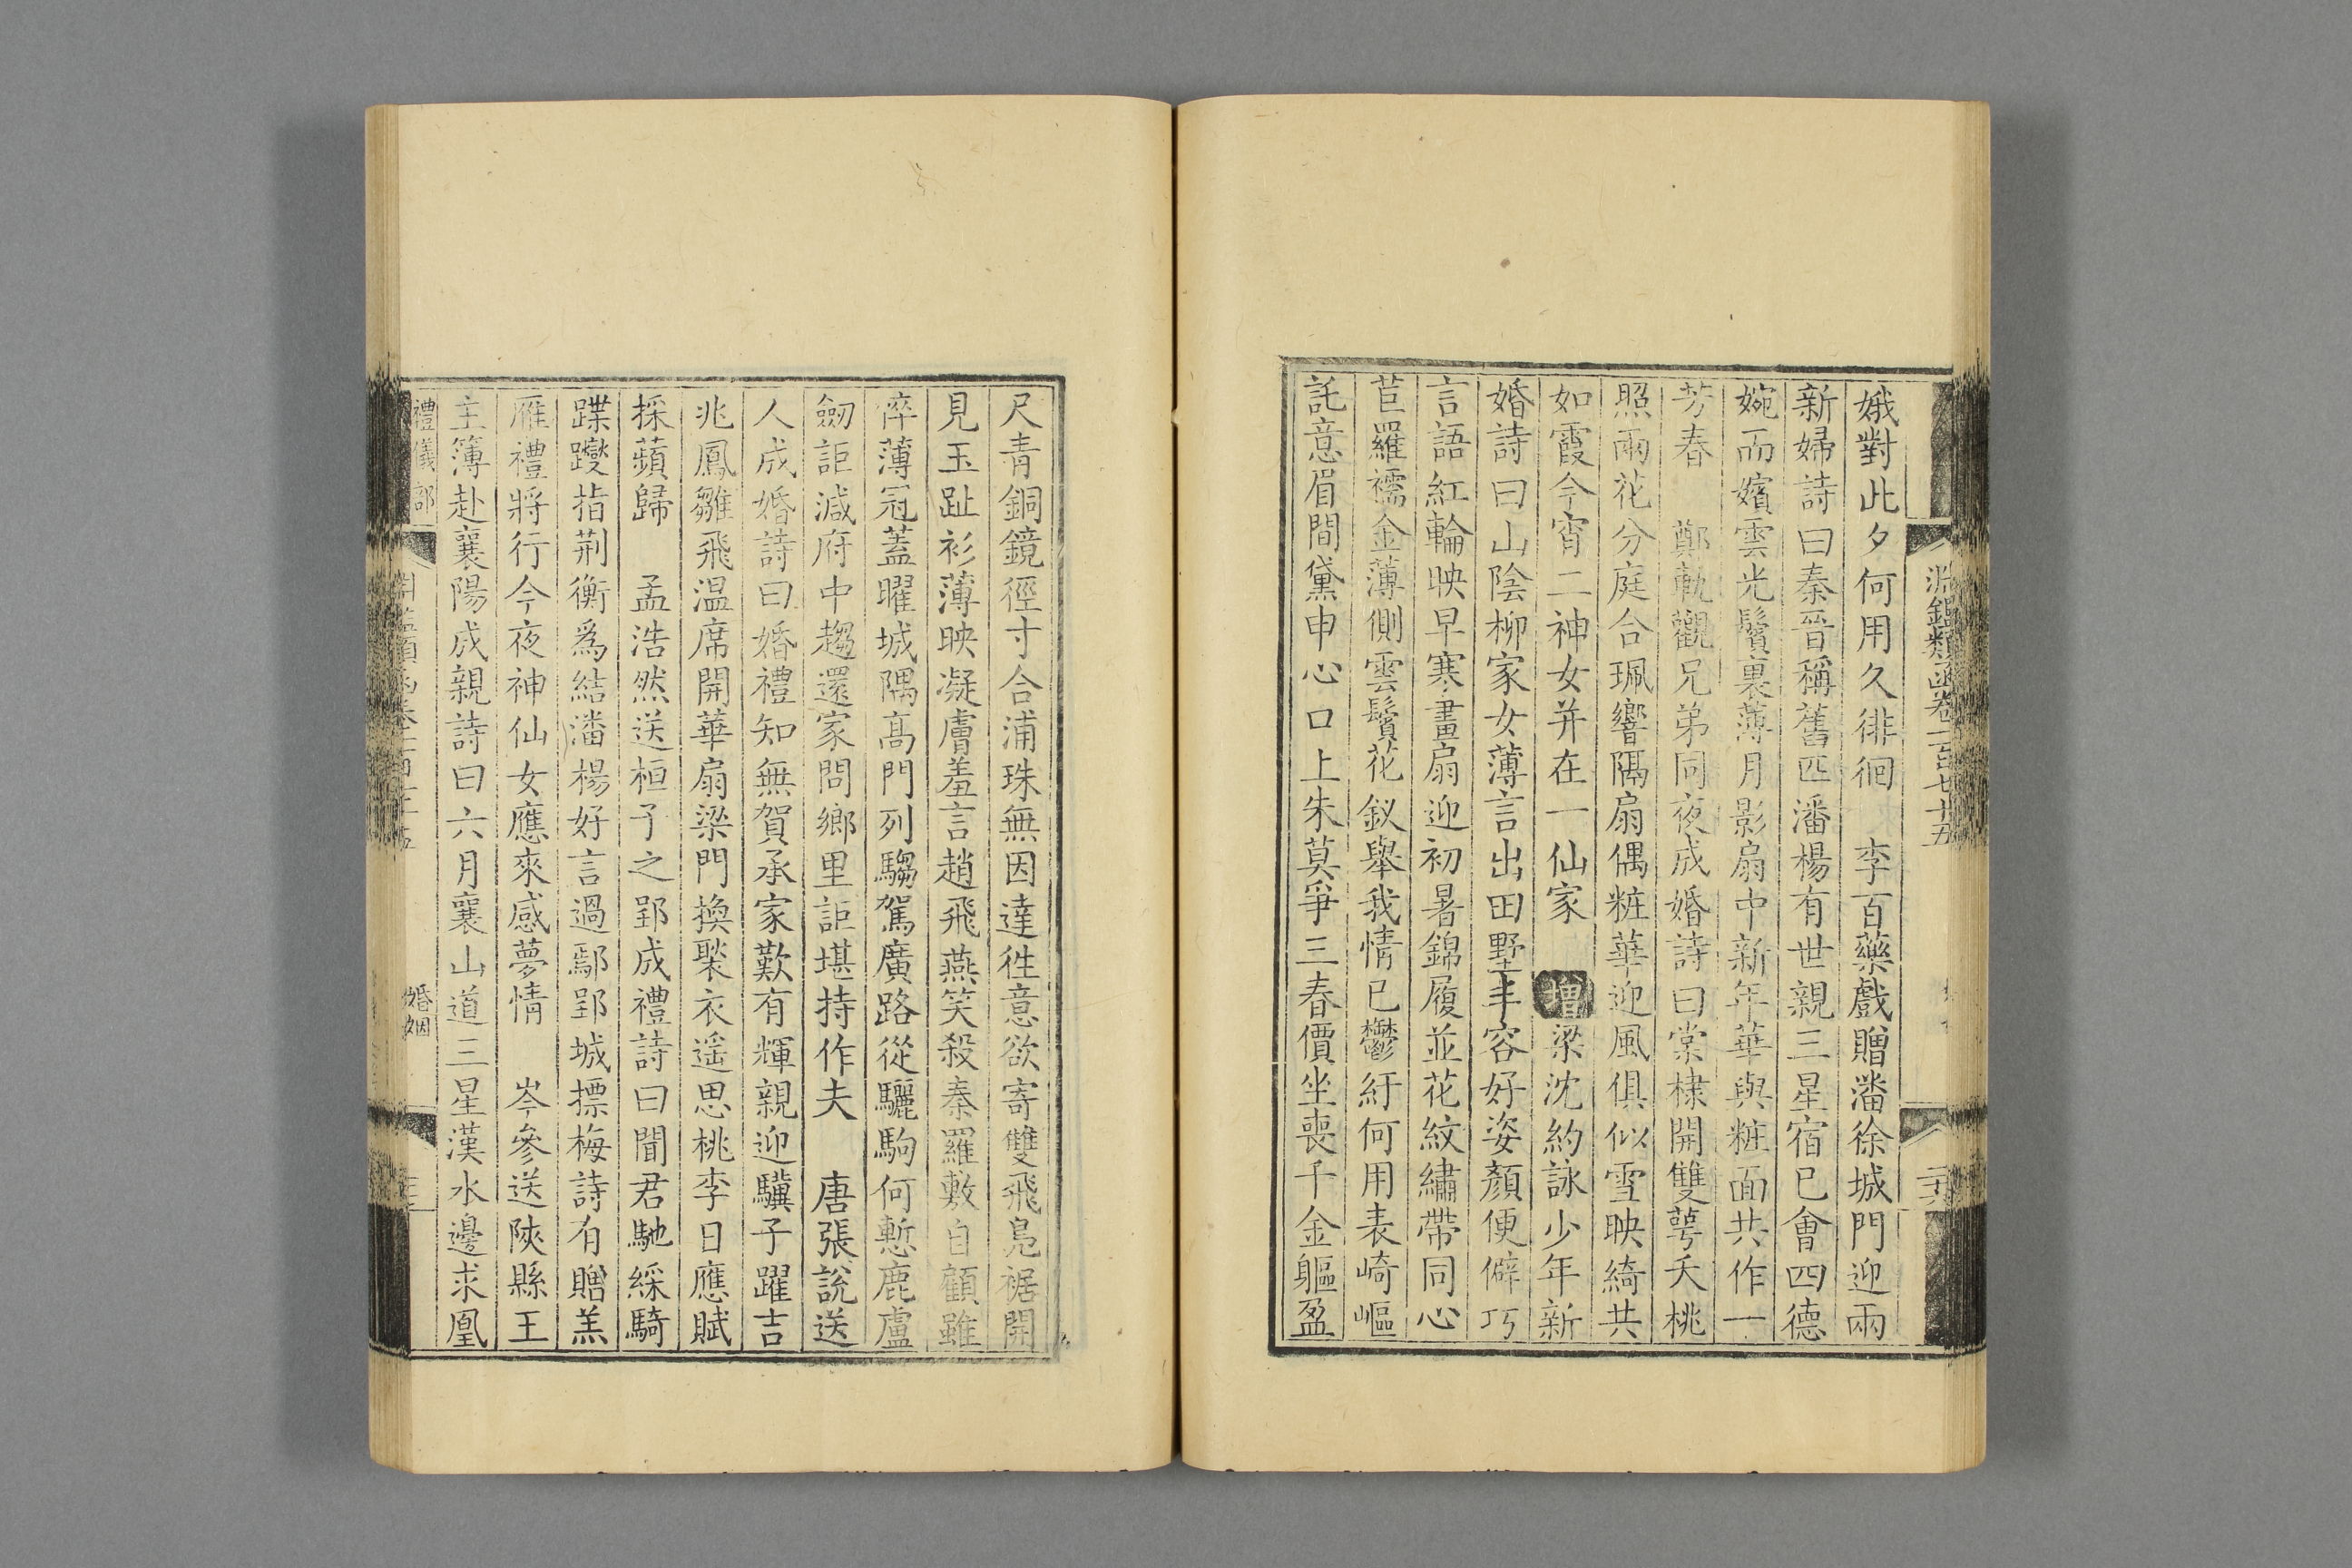 淵鑑類函卷一百七十五
二六
娥對此夕何用久徘徊　李百藥戲贈潘徐城門迎兩
新婦詩曰秦晉稱舊匹潘楊有世親三星宿已會四德
婉而嬪雲光鬢裏薄月影扇中新年華與粧面共作一
芳春　鄭軌觀兄弟同夜成婚詩曰棠棣開雙萼夭桃
照兩花分庭合珮響隔扇偶粧華迎風俱似雪映綺共
如霞今宵二神女并在一仙家　增梁沈約詠少年新
婚詩曰山陰柳家女薄言出田墅丰容好姿顏便僻巧
言語紅輪映早寒畫扇迎初暑錦履並花紋繡帶同心
苣羅襦金薄側雲鬢花釵舉我情已鬱紆何用表崎嶇
託意眉間黛申心口上朱莫爭三春價坐喪千金軀盈
尺青銅鏡徑寸合浦珠無因達徃意欲寄雙飛鳧裾開
見玉趾衫薄映凝膚羞言趙飛燕笑殺秦羅敷自顧雖
悴薄冠蓋曜城隅高門列騶駕廣路從驪駒何慙鹿盧
劒詎減府中趨還家問鄉里詎堪持作夫　唐張說送
人成婚詩曰婚禮知無賀承家歎有輝親迎驥子躍吉
兆鳳雛飛温席開華扇梁門換褧衣遥思桃李日應賦
採蘋歸　孟浩然送桓子之郢成禮詩曰聞君馳綵騎
蹀躞指荆衡爲結潘楊好言過鄢郢城摽梅詩有贈羔
雁禮將行今夜神仙女應來感夢情　岑參送陝縣王
主簿赴襄陽成親詩曰六月襄山道三星漢水邊求凰
禮儀部
婚姻